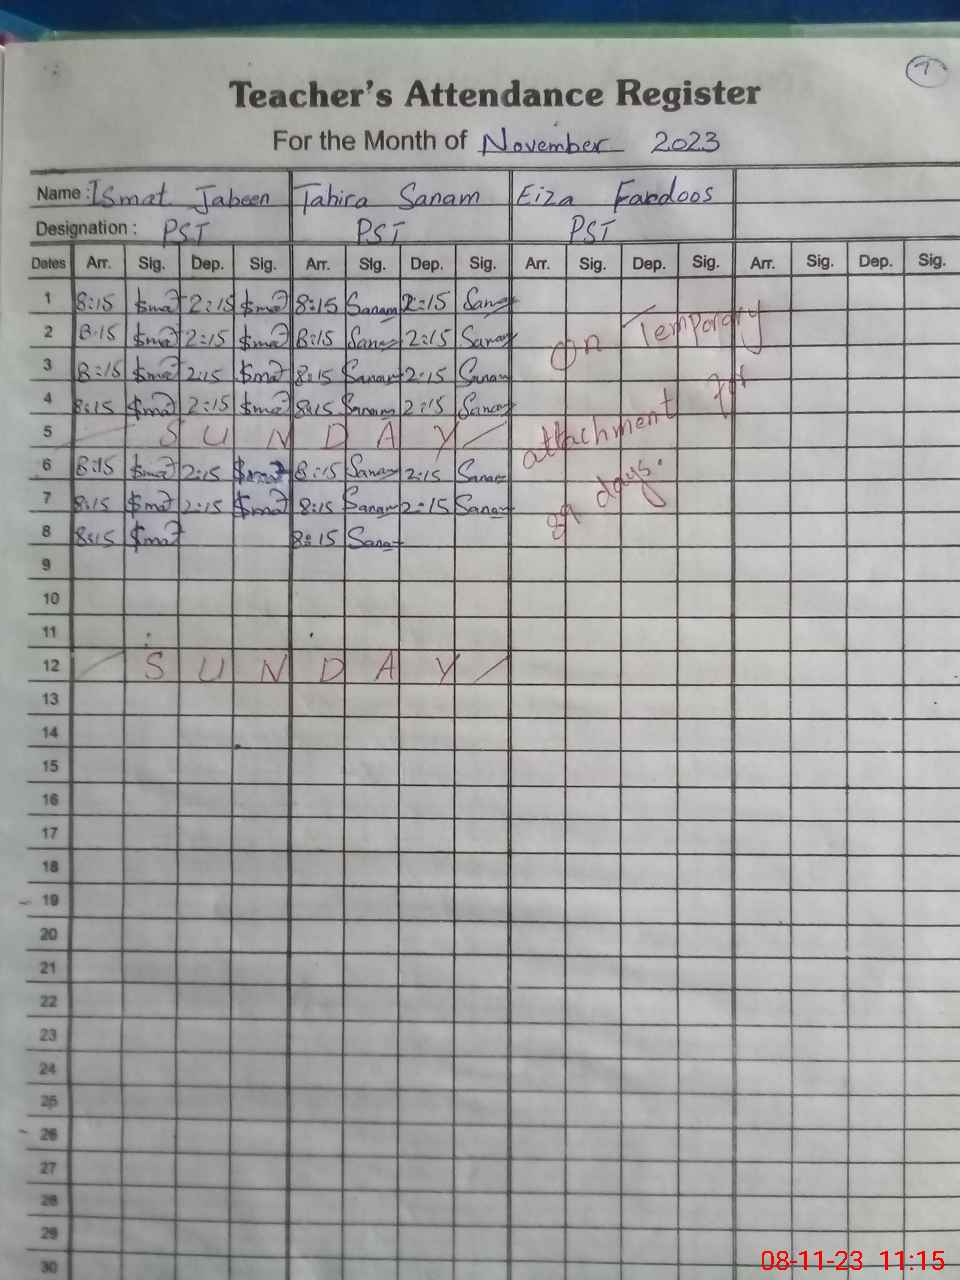 Teacher's Attendance Register
For the Month of November 2023
Name : Ismat Jabeen Tahira Sanam Eiza Fardoos
Designation : PST PST PST
Dates Arr. Sig. Dep. Sig. Arr. Sig. Dep. Sig. Arr. Sig. Dep. Sig. Arr. Sig. Dep. Sig.
1 8:15 Ismat 2:15 Ismat 8:15 Sanam 2:15 Sanam
2 8:15 Ismat 2:15 Ismat 8:15 Sanam 2:15 Sanam
3 8:15 Ismat 2:15 Ismat 8:15 Sanam 2:15 Sanam
4 8:15 Ismat 2:15 Ismat 8:15 Sanam 2:15 Sanam
5 SUNDAY
6 8:15 Ismat 2:15 Ismat 8:15 Sanam 2:15 Sanam
7 8:15 Ismat 2:15 Ismat 8:15 Sanam 2:15 Sanam
8 8:15 Ismat 8:15 Sanam
On Temporary
attachment for
days.
9
10
11
12 SUNDAY
13
14
15
16
17
18
19
20
21
22
23
24
25
26
27
28
29
30
08-11-23 11:15